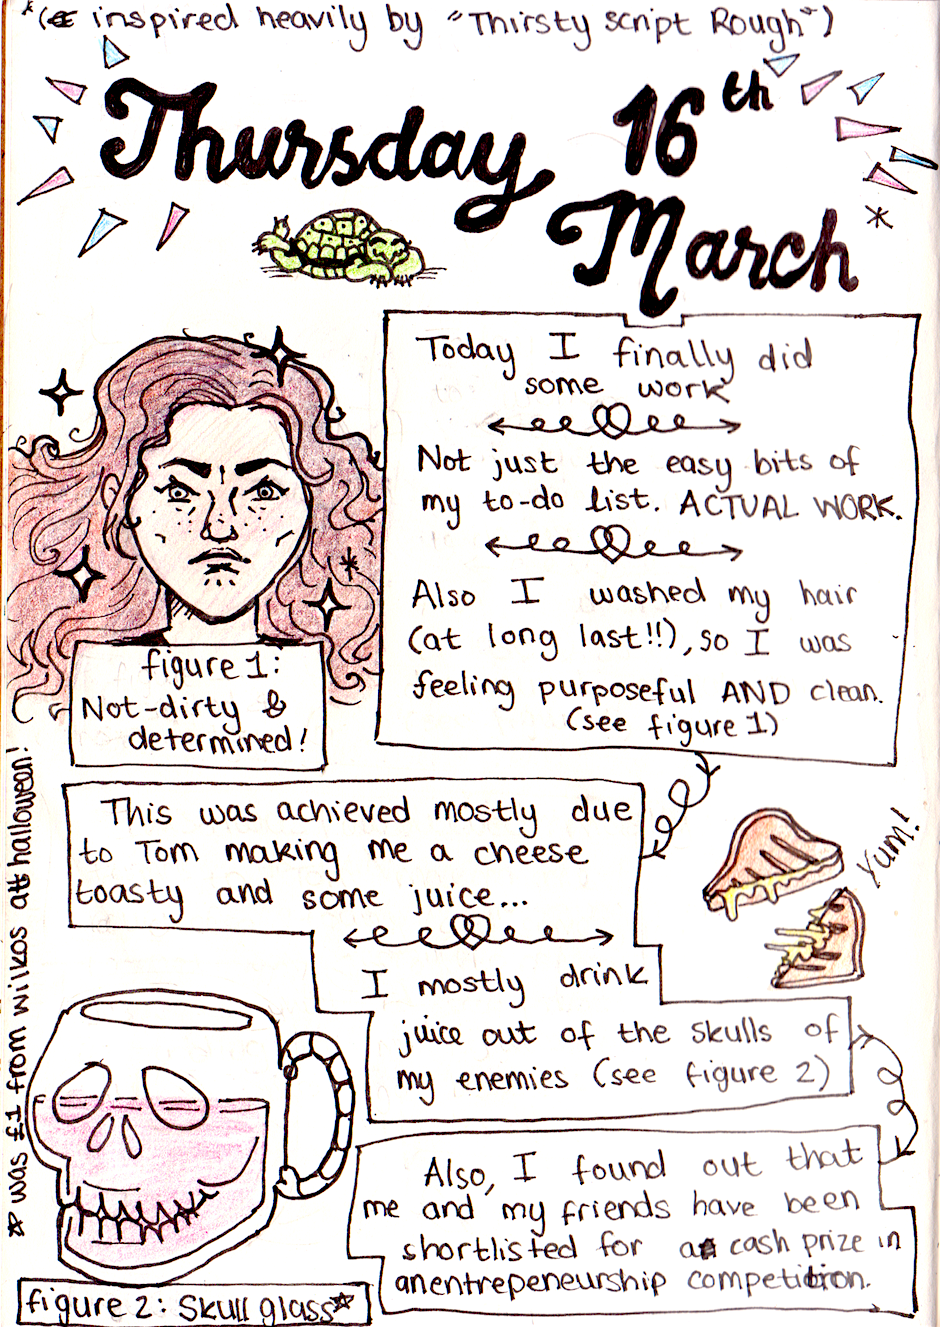 *(inspired heavily by "Thirsty script Rough")
Thursday 16th
March *
Today I finally did
some work
Not just the easy bits of
my to-do list. ACTUAL WORK.
Also I washed my hair
(at long last!!), so I was
feeling purposeful AND clean.
(see figure 1)
figure 1:
Not-dirty &
determined!
This was achieved mostly due
to Tom making me a cheese
toasty and some juice...
Yum!
I mostly drink
juice out of the skulls of
my enemies (see figure 2)
Also, I found out that
me and my friends have been
shortlisted for a cash prize in
anentrepeneurship competition.
figure 2: Skull glass☆
☆ was £1 from wilkos at hallowean!